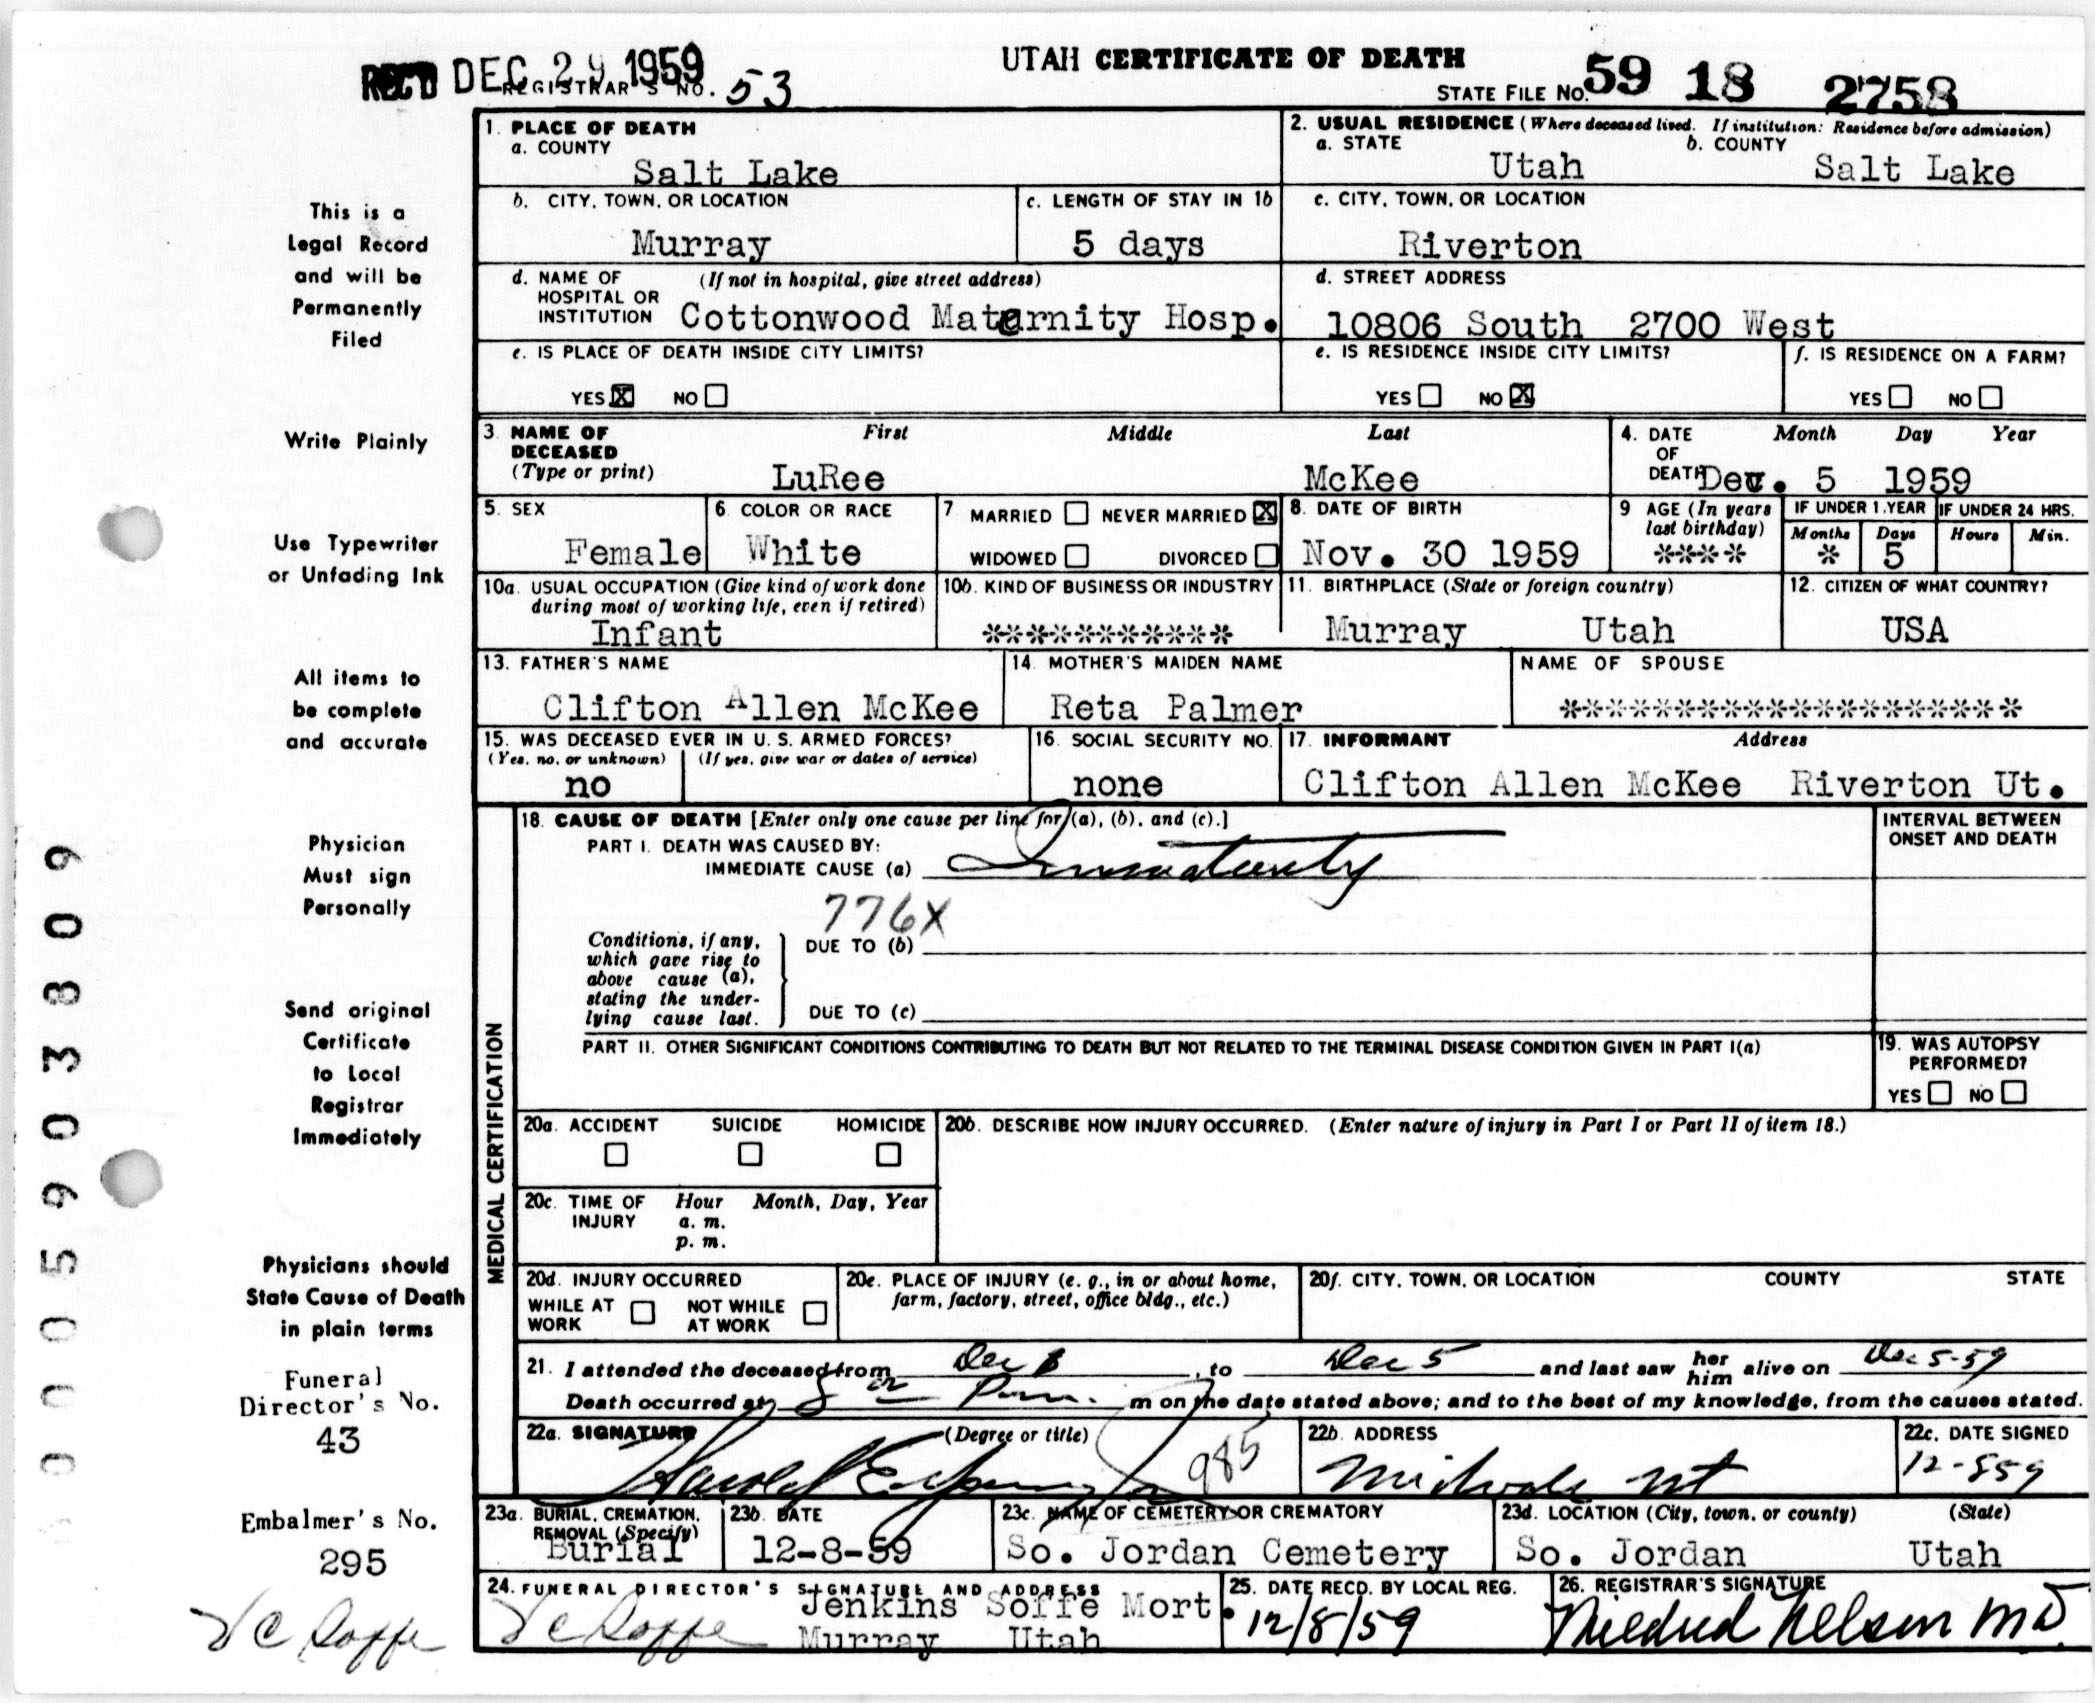 REC'D DEC 29 1959
REGISTRAR'S NO. 53
UTAH CERTIFICATE OF DEATH
STATE FILE NO. 59 18 2758
This is a
Legal Record
and will be
Permanently
Filed
Write Plainly
Use Typewriter
or Unfading Ink
All items to
be complete
and accurate
Physician
Must sign
Personally
Send original
Certificate
to Local
Registrar
Immediately
Physicians should
State Cause of Death
in plain terms
Funeral
Director's No.
43
Embalmer's No.
295
0005903809
1. PLACE OF DEATH
a. COUNTY
Salt Lake
2. USUAL RESIDENCE (Where deceased lived. If institution: Residence before admission)
a. STATE Utah b. COUNTY Salt Lake
b. CITY, TOWN, OR LOCATION
Murray
c. LENGTH OF STAY IN 1b
5 days
c. CITY, TOWN, OR LOCATION
Riverton
d. NAME OF HOSPITAL OR INSTITUTION (If not in hospital, give street address)
Cottonwood Maternity Hosp.
d. STREET ADDRESS
10806 South 2700 West
e. IS PLACE OF DEATH INSIDE CITY LIMITS?
YES X NO
e. IS RESIDENCE INSIDE CITY LIMITS?
YES NO X
f. IS RESIDENCE ON A FARM?
YES NO
3. NAME OF DECEASED (Type or print)
First Middle Last
LuRee McKee
4. DATE OF DEATH
Month Day Year
Dec. 5 1959
5. SEX
Female
6. COLOR OR RACE
White
7 MARRIED NEVER MARRIED X
WIDOWED DIVORCED
8. DATE OF BIRTH
Nov. 30 1959
9 AGE (In years last birthday)
****
IF UNDER 1 YEAR
Months Days
* 5
IF UNDER 24 HRS.
Hours Min.
10a. USUAL OCCUPATION (Give kind of work done
during most of working life, even if retired)
Infant
10b. KIND OF BUSINESS OR INDUSTRY
***********
11. BIRTHPLACE (State or foreign country)
Murray Utah
12. CITIZEN OF WHAT COUNTRY?
USA
13. FATHER'S NAME
Clifton Allen McKee
14. MOTHER'S MAIDEN NAME
Reta Palmer
NAME OF SPOUSE
********************
15. WAS DECEASED EVER IN U. S. ARMED FORCES?
(Yes, no, or unknown) (If yes, give war or dates of service)
no
16. SOCIAL SECURITY NO.
none
17. INFORMANT Address
Clifton Allen McKee Riverton Ut.
MEDICAL CERTIFICATION
18. CAUSE OF DEATH [Enter only one cause per line for (a), (b), and (c).]
PART I. DEATH WAS CAUSED BY:
IMMEDIATE CAUSE (a) Immaturity
776X
Conditions, if any,
which gave rise to
above cause (a),
stating the under-
lying cause last.
DUE TO (b)
DUE TO (c)
INTERVAL BETWEEN
ONSET AND DEATH
PART II. OTHER SIGNIFICANT CONDITIONS CONTRIBUTING TO DEATH BUT NOT RELATED TO THE TERMINAL DISEASE CONDITION GIVEN IN PART I(a)
19. WAS AUTOPSY
PERFORMED?
YES NO
20a. ACCIDENT SUICIDE HOMICIDE
20b. DESCRIBE HOW INJURY OCCURRED. (Enter nature of injury in Part I or Part II of item 18.)
20c. TIME OF INJURY Hour Month, Day, Year
a. m.
p. m.
20d. INJURY OCCURRED
WHILE AT WORK NOT WHILE AT WORK
20e. PLACE OF INJURY (e. g., in or about home,
farm, factory, street, office bldg., etc.)
20f. CITY, TOWN, OR LOCATION COUNTY STATE
21. I attended the deceased from Dec , to Dec 5 and last saw her him alive on Dec 5-59
Death occurred at 8 Pm. m on the date stated above; and to the best of my knowledge, from the causes stated.
22a. SIGNATURE (Degree or title)
Harold E 985
22b. ADDRESS
Midvale Ut
22c. DATE SIGNED
12-859
23a. BURIAL, CREMATION,
REMOVAL (Specify)
Burial
23b. DATE
12-8-59
23c. NAME OF CEMETERY OR CREMATORY
So. Jordan Cemetery
23d. LOCATION (City, town, or county) (State)
So. Jordan Utah
24. FUNERAL DIRECTOR'S SIGNATURE AND ADDRESS
Jenkins Soffe Mort.
Murray Utah
25. DATE RECD. BY LOCAL REG.
12/8/59
26. REGISTRAR'S SIGNATURE
Mildred Nelson MD.